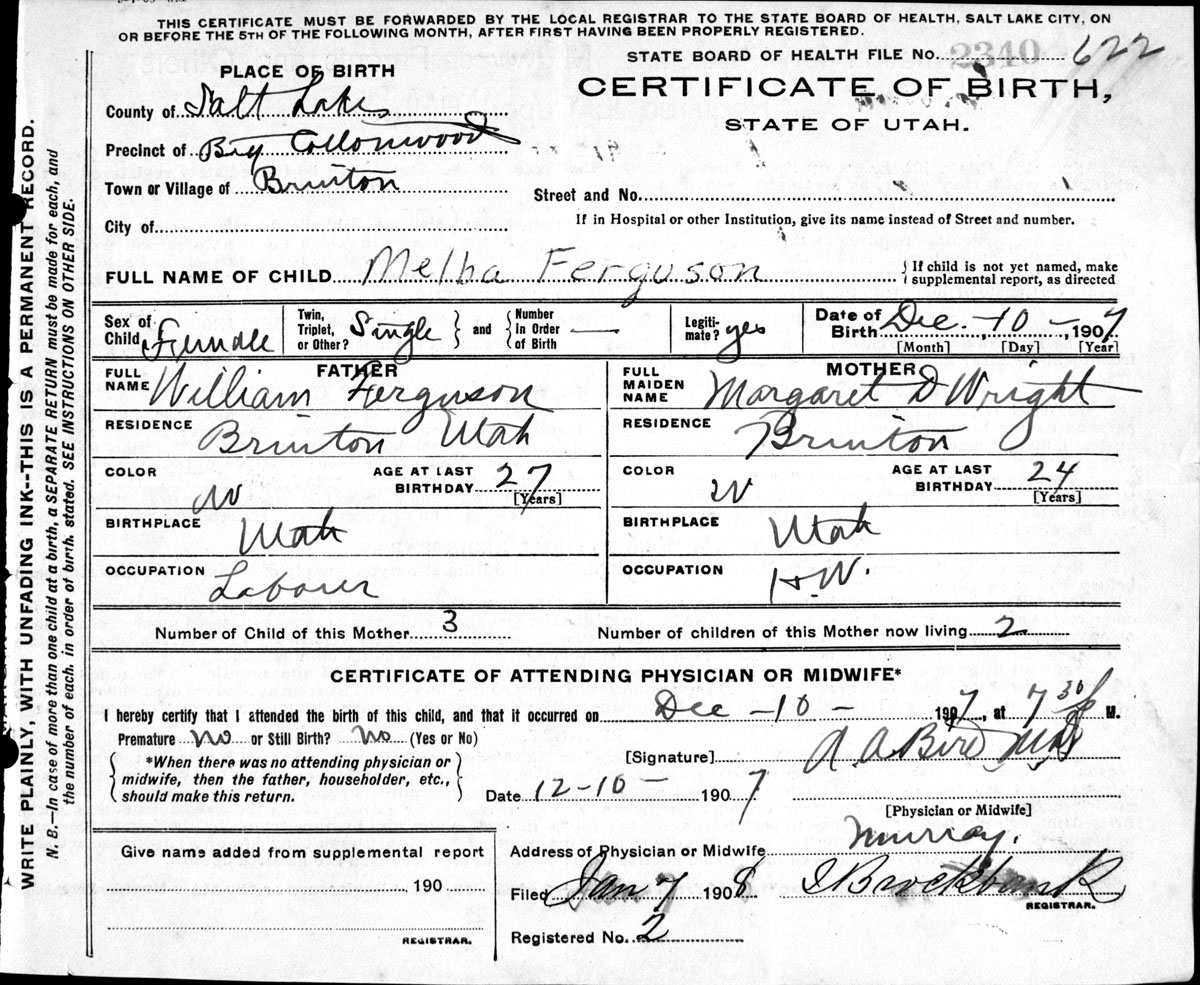 THIS CERTIFICATE MUST BE FORWARDED BY THE LOCAL REGISTRAR TO THE STATE BOARD OF HEALTH, SALT LAKE CITY, ON
OR BEFORE THE 5TH OF THE FOLLOWING MONTH, AFTER FIRST HAVING BEEN PROPERLY REGISTERED.
STATE BOARD OF HEALTH FILE No. 2340 622
PLACE OF BIRTH
CERTIFICATE OF BIRTH,
STATE OF UTAH.
County of Salt Lake
Precinct of Big Cottonwood
Town or Village of Brinton
Street and No.
City of
If in Hospital or other Institution, give its name instead of Street and number.
FULL NAME OF CHILD Melba Ferguson
{ If child is not yet named, make
supplemental report, as directed
Sex of Child Female
Twin, Triplet, or Other? Single } and { Number in Order of Birth —
Legitimate? yes
Date of Birth Dec - 10 - 1907
[Month] [Day] [Year]
FATHER
FULL NAME William Ferguson
RESIDENCE Brinton Utah
COLOR W
AGE AT LAST BIRTHDAY 27
[Years]
BIRTHPLACE Utah
OCCUPATION Laborer
MOTHER
FULL MAIDEN NAME Margaret D Wright
RESIDENCE Brinton
COLOR W
AGE AT LAST BIRTHDAY 24
[Years]
BIRTHPLACE Utah
OCCUPATION H.W.
Number of Child of this Mother 3
Number of children of this Mother now living 2
CERTIFICATE OF ATTENDING PHYSICIAN OR MIDWIFE*
I hereby certify that I attended the birth of this child, and that it occurred on Dec - 10 - 1907, at 7 30 P M.
Premature No or Still Birth? No (Yes or No)
[Signature] A A Bird
{ *When there was no attending physician or
midwife, then the father, householder, etc.,
should make this return. }
Date 12-10- 1907
[Physician or Midwife]
Address of Physician or Midwife Murray.
Give name added from supplemental report
190
REGISTRAR.
Filed Jan 7 1908 Brockbank
REGISTRAR.
Registered No. 2
WRITE PLAINLY, WITH UNFADING INK--THIS IS A PERMANENT RECORD.
N. B.—In case of more than one child at a birth, a SEPARATE RETURN must be made for each, and
the number of each, in order of birth, stated. SEE INSTRUCTIONS ON OTHER SIDE.